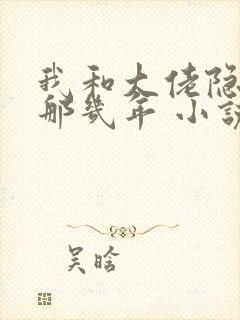 我和大佬隐
那几年 小説
吴晗